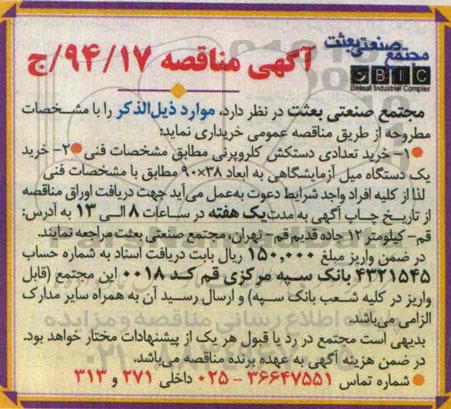 مجتمع صنعتی بعثت
BIC
Beasat Industrial Complex
آگهی مناقصه ۹۴/۱۷/ج
مجتمع صنعتی بعثت در نظر دارد، موارد ذیل‌الذکر را با مشخصات
مطروحه از طریق مناقصه عمومی خریداری نماید:
۱- خرید تعدادی دستکش کلروپرنی مطابق مشخصات فنی ۲- خرید
یک دستگاه میل آزمایشگاهی به ابعاد ۳۸×۹۰ مطابق با مشخصات فنی
لذا از کلیه افراد واجد شرایط دعوت به‌عمل می‌آید جهت دریافت اوراق مناقصه
از تاریخ چاپ آگهی به مدت یک هفته در ساعات ۸ الی ۱۳ به آدرس:
قم- کیلومتر ۱۲ جاده قدیم قم- تهران، مجتمع صنعتی بعثت مراجعه نمایند.
در ضمن واریز مبلغ ۱۵۰,۰۰۰ ریال بابت دریافت اسناد به شماره حساب
۴۳۲۱۵۴۵ بانک سپه مرکزی قم کد ۰۰۱۸ این مجتمع (قابل
واریز در کلیه شعب بانک سپه) و ارسال رسید آن به همراه سایر مدارک
الزامی می‌باشد.
بدیهی است مجتمع در رد یا قبول هر یک از پیشنهادات مختار خواهد بود.
در ضمن هزینه آگهی به عهده برنده مناقصه می‌باشد.
شماره تماس ۳۶۶۴۷۵۵۱ - ۰۲۵ داخلی ۲۷۱ و ۳۱۳